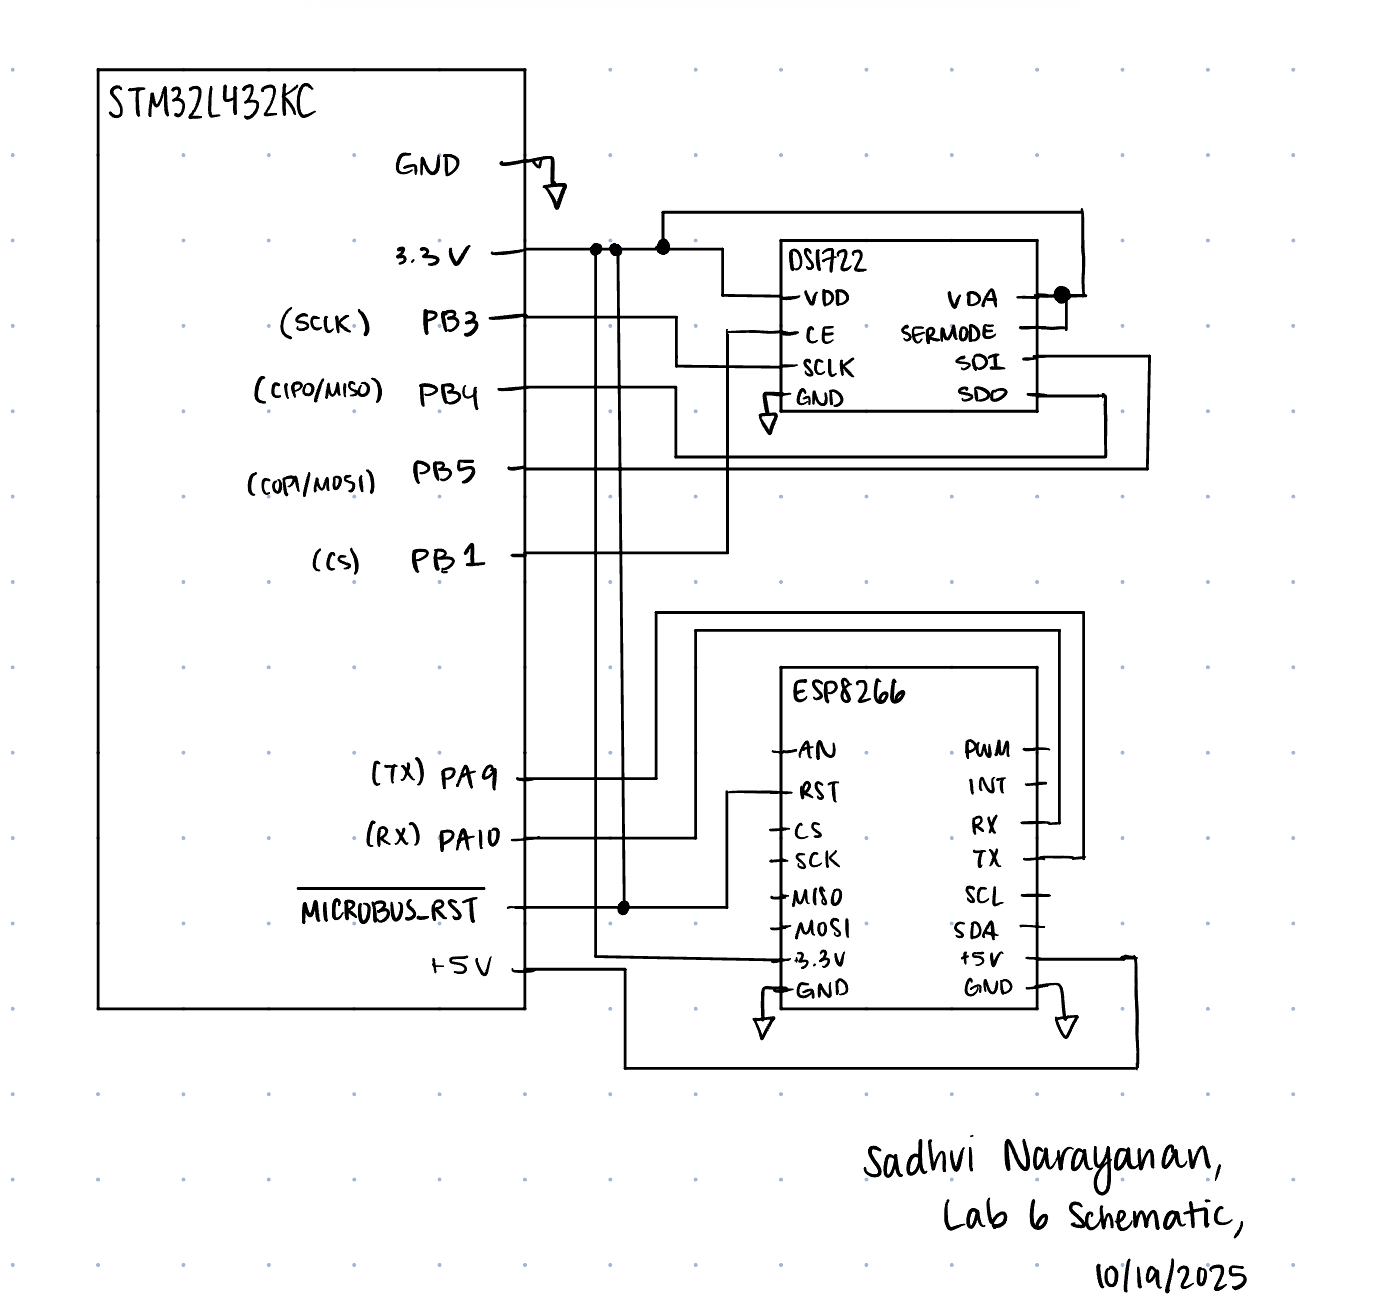 STM32L432KC
GND
3.3V
(SCLK) PB3
(CIPO/MISO) PB4
(COPI/MOSI) PB5
(CS) PB1
(TX) PA9
(RX) PA10
MICROBUS_RST
+5V
DS1722
VDD
CE
SCLK
GND
VDA
SERMODE
SDI
SDO
ESP8266
AN
RST
CS
SCK
MISO
MOSI
3.3V
GND
PWM
INT
RX
TX
SCL
SDA
+5V
GND
Sadhvi Narayanan,
Lab 6 Schematic,
10/19/2025